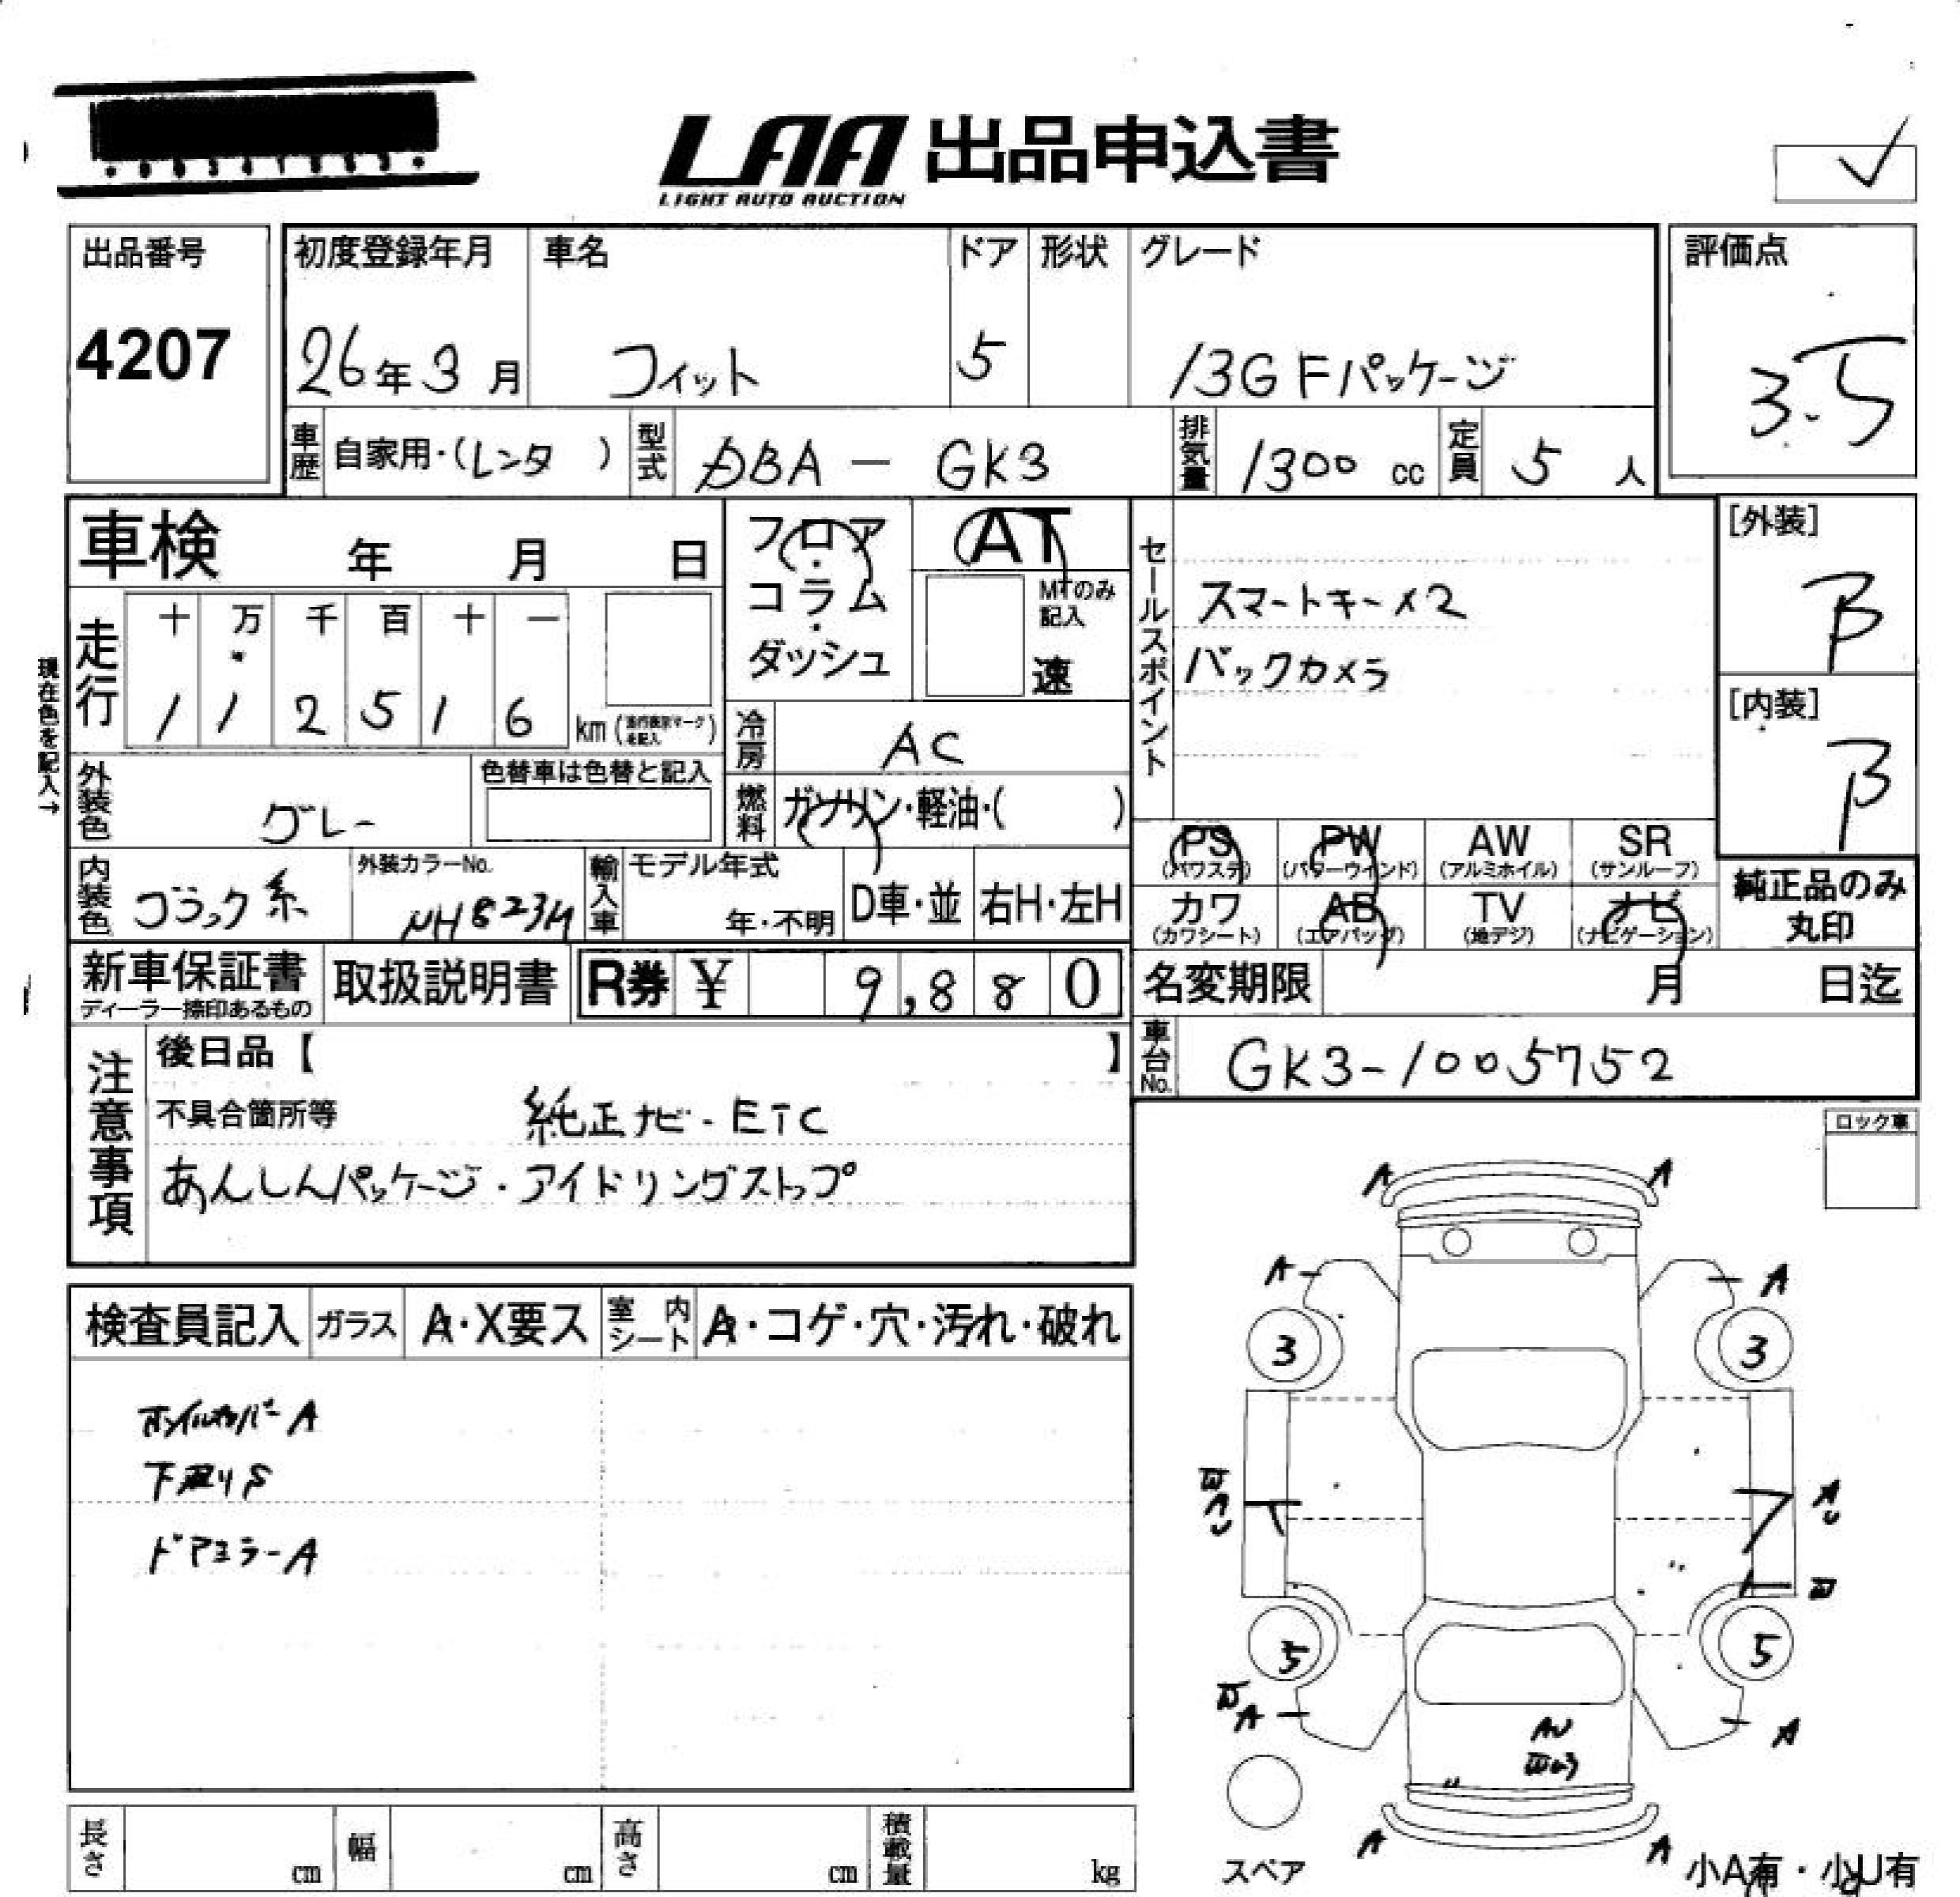 LAA 出品申込書
LIGHT AUTO AUCTION
出品番号
4207
初度登録年月 車名 ドア 形状 グレード
26年3月 フィット 5 13G Fパッケージ
評価点
3.5
車歴 自家用・(レンタ ) 型式 DBA - GK3 排気量 1300 cc 定員 5 人
車検 年 月 日
フロア・コラム・ダッシュ
AT
MTのみ記入
速
現在色を記入→
走行 十 万 千 百 十 一
1 1 2 5 1 6 km (走行表示マークを記入)
冷房 AC
燃料 ガソリン・軽油・( )
外装色 グレー
色替車は色替と記入
内装色 ブラック系
外装カラーNo. NH823M
輸入車 モデル年式
年・不明 D車・並 右H・左H
セールスポイント
スマートキー×2
バックカメラ
[外装]
B
[内装]
B
PS (パワステ) PW (パワーウィンド) AW (アルミホイル) SR (サンルーフ)
カワ (カワシート) AB (エアバッグ) TV (地デジ) ナビ (ナビゲーション)
純正品のみ丸印
新車保証書
ディーラー捺印あるもの
取扱説明書
R券 ¥ 9,880
名変期限 月 日迄
車台No. GK3-1005752
注意事項
後日品【 】
不具合箇所等 純正ナビ・ETC
あんしんパッケージ・アイドリングストップ
ロック車
検査員記入 ガラス A・X要ス 室内シート A・コゲ・穴・汚れ・破れ
ホイルカバーA
下廻りS
ドアミラーA
A A
A A
3 3
A
U
A
U
5 5
A A
AU
A A
スペア
小A有・小U有
長さ cm 幅 cm 高さ cm 積載量 kg